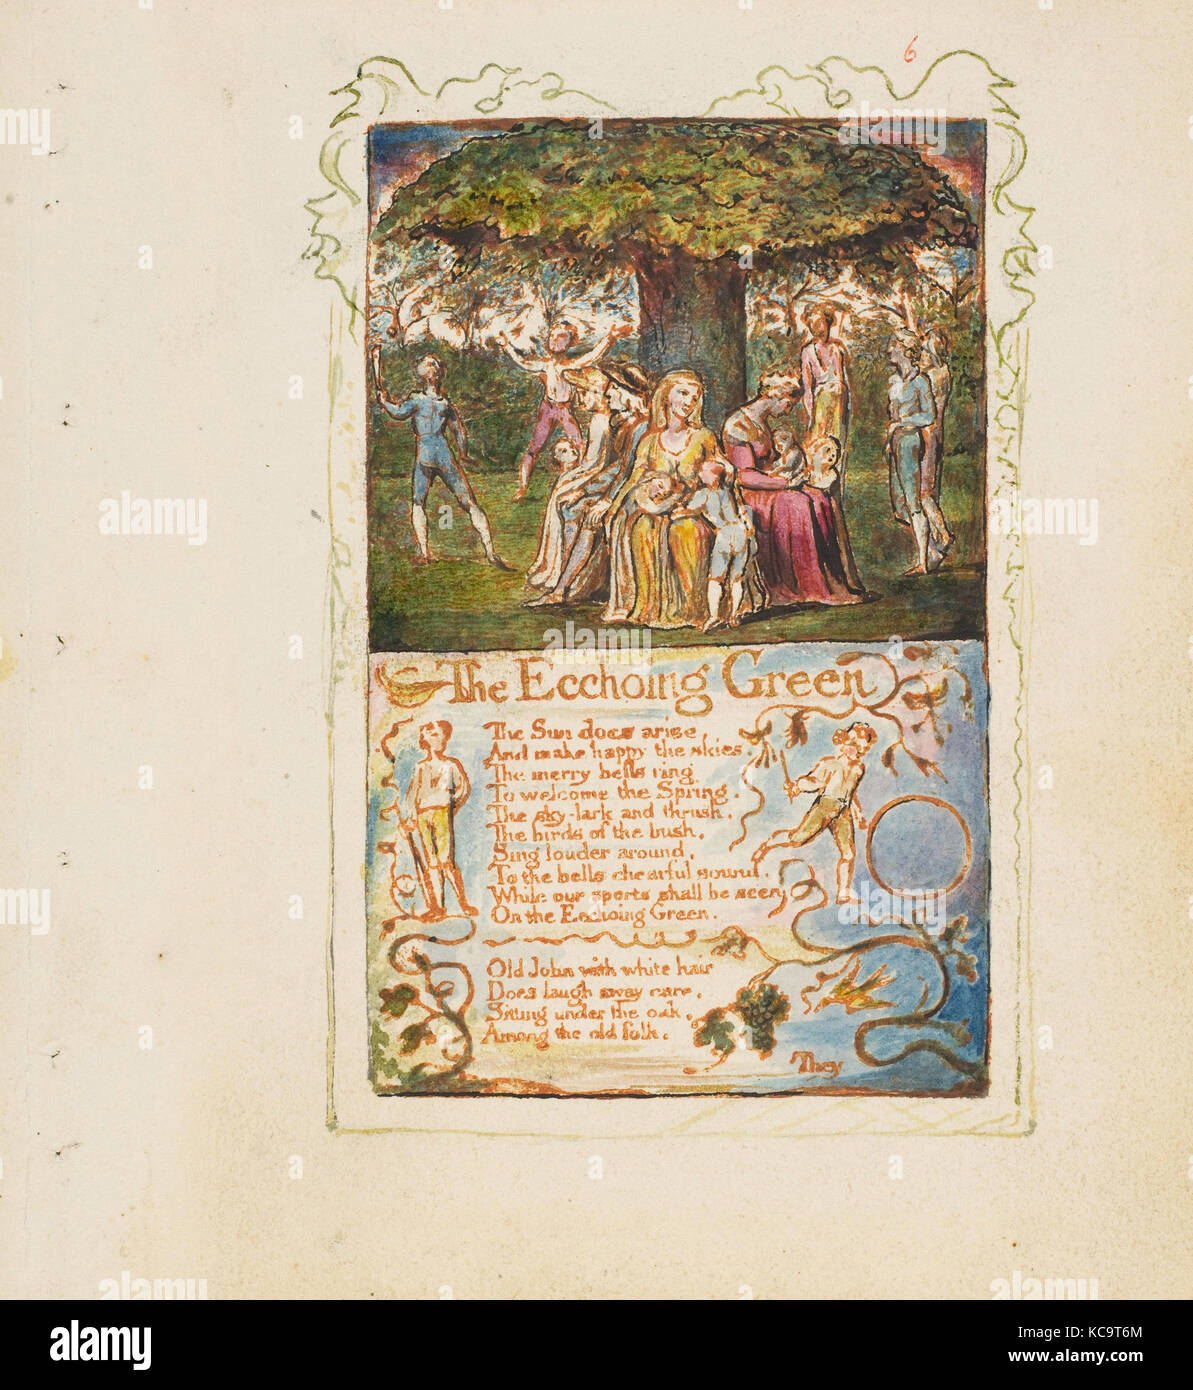 6
The Ecchoing Green
The Sun does arise
And make happy the skies.
The merry bells ring
To welcome the Spring.
The sky-lark and thrush.
The birds of the bush,
Sing louder around,
To the bells chearful sound.
While our sports shall be seen
On the Ecchoing Green.
Old John with white hair
Does laugh away care,
Sitting under the oak,
Among the old folk.
They
alamy
Image ID: KC9T6M
www.alamy.com